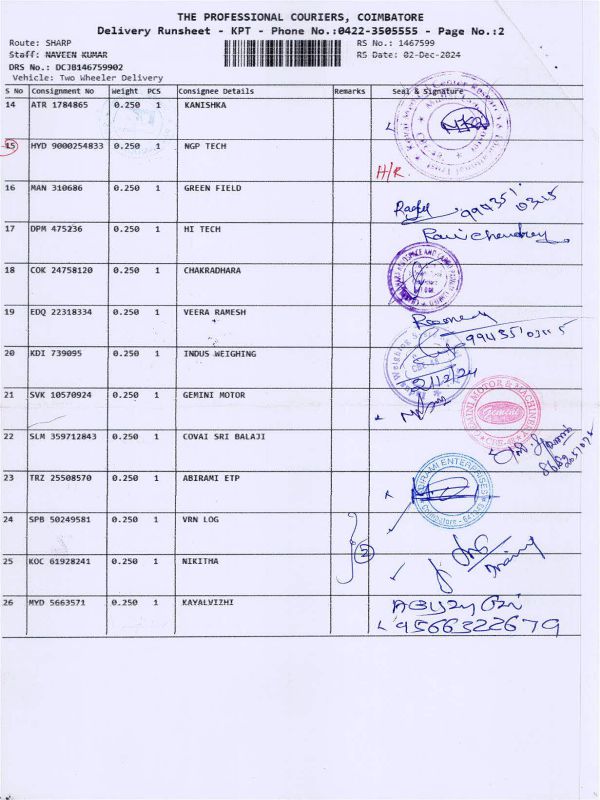 THE PROFESSIONAL COURIERS, COIMBATORE
Delivery Runsheet - KPT - Phone No.:0422-3505555 - Page No.:2
Route: SHARP RS No.: 1467599
Staff: NAVEEN KUMAR RS Date: 02-Dec-2024
DRS No.: DCJB146759902
Vehicle: Two Wheeler Delivery
S No Consignment No Weight PCS Consignee Details Remarks Seal & Signature
14 ATR 1784865 0.250 1 KANISHKA
15 HYD 9000254833 0.250 1 NGP TECH
H/R.
16 MAN 310686 0.250 1 GREEN FIELD
17 DPM 475236 0.250 1 HI TECH
18 COK 24758120 0.250 1 CHAKRADHARA
19 EDQ 22318334 0.250 1 VEERA RAMESH
20 KDI 739095 0.250 1 INDUS WEIGHING
21 SVK 10570924 0.250 1 GEMINI MOTOR
GEMINI MOTOR & MACHINERY
Gemini
22 SLM 359712843 0.250 1 COVAI SRI BALAJI
23 TRZ 25508570 0.250 1 ABIRAMI ETP
ABIRAMI ENTERPRISES
24 SPB 50249581 0.250 1 VRN LOG
2
25 KOC 61928241 0.250 1 NIKITHA
26 MYD 5663571 0.250 1 KAYALVIZHI
9566322679